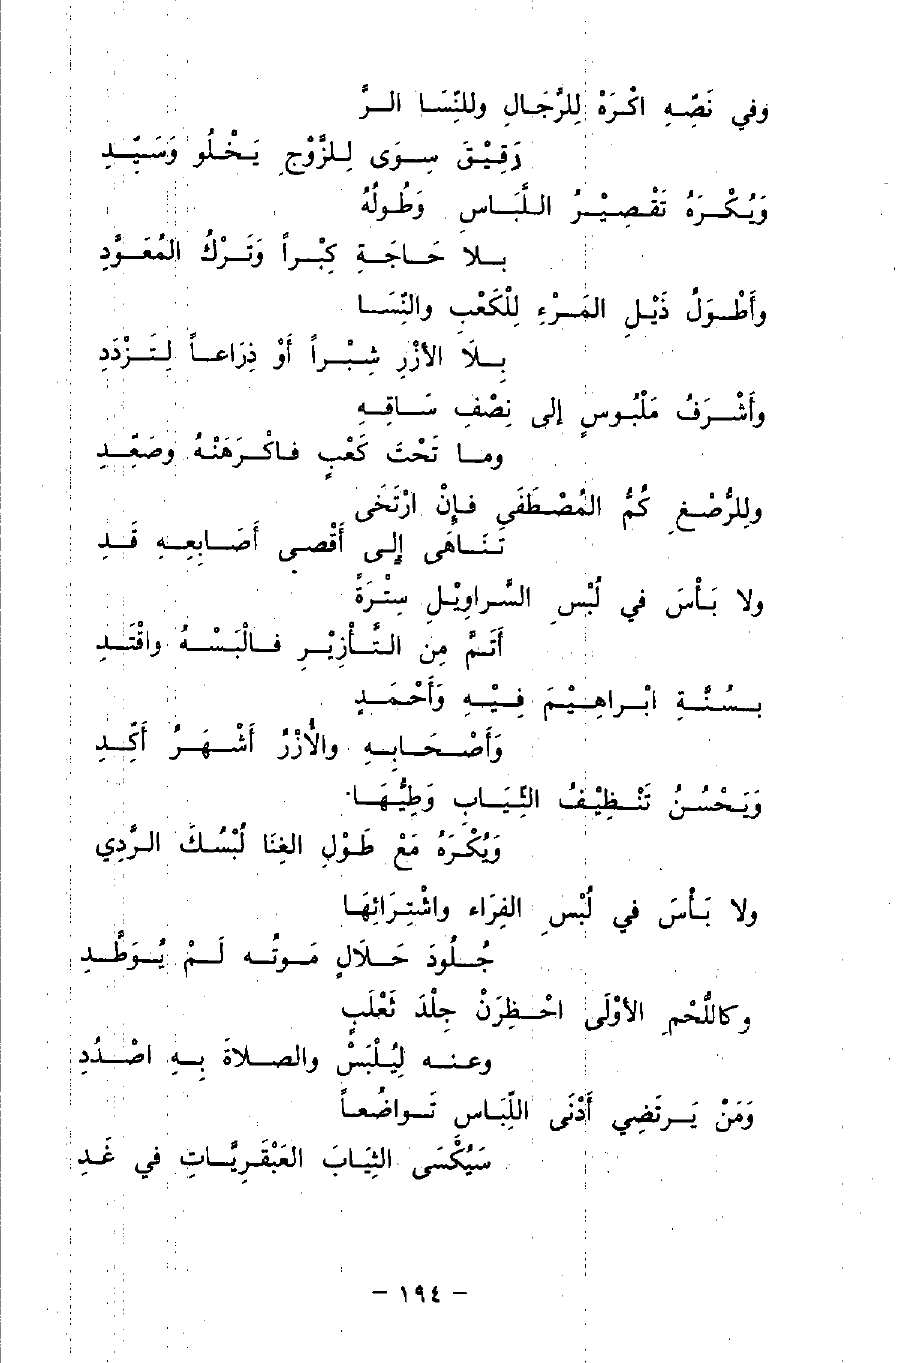 وفي نَصِّهِ اكْرَهْ لِلرِّجَالِ وللنِّسَا الرَّ
رَقِيْقَ سِوَى لِلزَّوْجِ يَخْلُو وَسَيِّدِ
وَيُكْرَهُ تَقْصِيْرُ اللِّبَاسِ وَطُولُهُ
بِلا حَاجَةٍ كِبْراً وَتَرْكُ المُعَوَّدِ
وأَطْوَلُ ذَيْلِ المَرْءِ لِلْكَعْبِ والنِّسَا
بِلَا الأزْرِ شِبْراً أَوْ ذِرَاعاً لِتَزْدَدِ
وأَشْرَفُ مَلْبُوسٍ إلى نِصْفِ سَاقِهِ
وما تَحْتَ كَعْبٍ فاكْرَهَنْهُ وصَعِّدِ
ولِلرُّصْغِ كُمُّ المُصْطَفَى فإنْ ارْتَخَى
تَنَاهَى إلى أَقْصى أَصَابِعِهِ قَدِ
ولا بَأْسَ في لُبْسِ السَّراوِيْلِ سِتْرَةً
أَتَمَّ مِن التَّأْزِيْرِ فالْبَسْهُ واقْتَدِ
بِسُنَّةِ ابْراهِيْمَ فِيْهِ وَأَحْمَدٍ
وَأَصْحَابِهِ والأُزْرُ أَشْهَرُ أَكِّدِ
وَيَحْسُنُ تَنْظِيْفُ الثِّيَابِ وَطَيُّهَا
وَيُكْرَهُ مَعْ طَوْلِ الغِنَا لُبْسُكَ الرَّدِي
ولا بَأْسَ في لُبْسِ الفِرَاءِ واشْتِرَائِهَا
جُلُودَ حَلَالٍ مَوتُه لَمْ يُوَطَّدِ
وكاللَّحْمِ الأوْلَى احْظِرَنْ جِلْدَ ثَعْلَبٍ
وعنه لِيُلْبَسْ والصلاةَ بِهِ اصْدُدِ
وَمَنْ يَرتَضِي أَدْنَى اللِّبَاسِ تَواضُعاً
سَيُكْسَى الثِيَابَ العَبْقَرِيَّاتِ في غَدِ
– ١٩٤ –